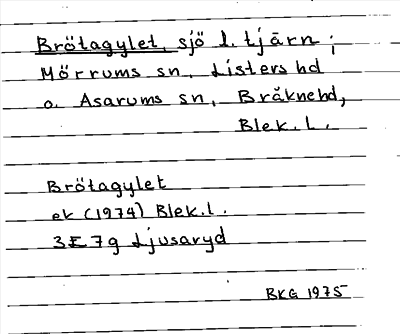 Brötagylet, sjö l. tjärn;
Mörrums sn, Listers hd
o. Asarums sn, Bräknehd,
Blek.l.
Brötagylet
ek (1974) Blek.l.
3E7g Ljusaryd
BKG 1975